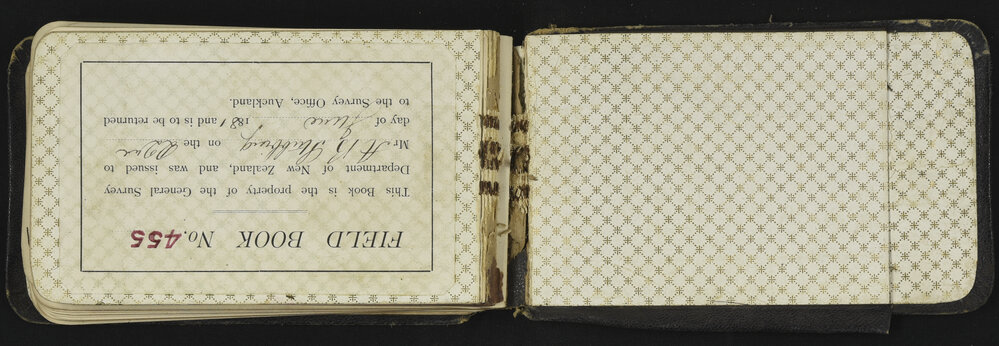 FIELD BOOK No. 455
This Book is the property of the General Survey
Department of New Zealand, and was issued to
Mr on the
day of June 1881 and is to be returned
to the Survey Office, Auckland.